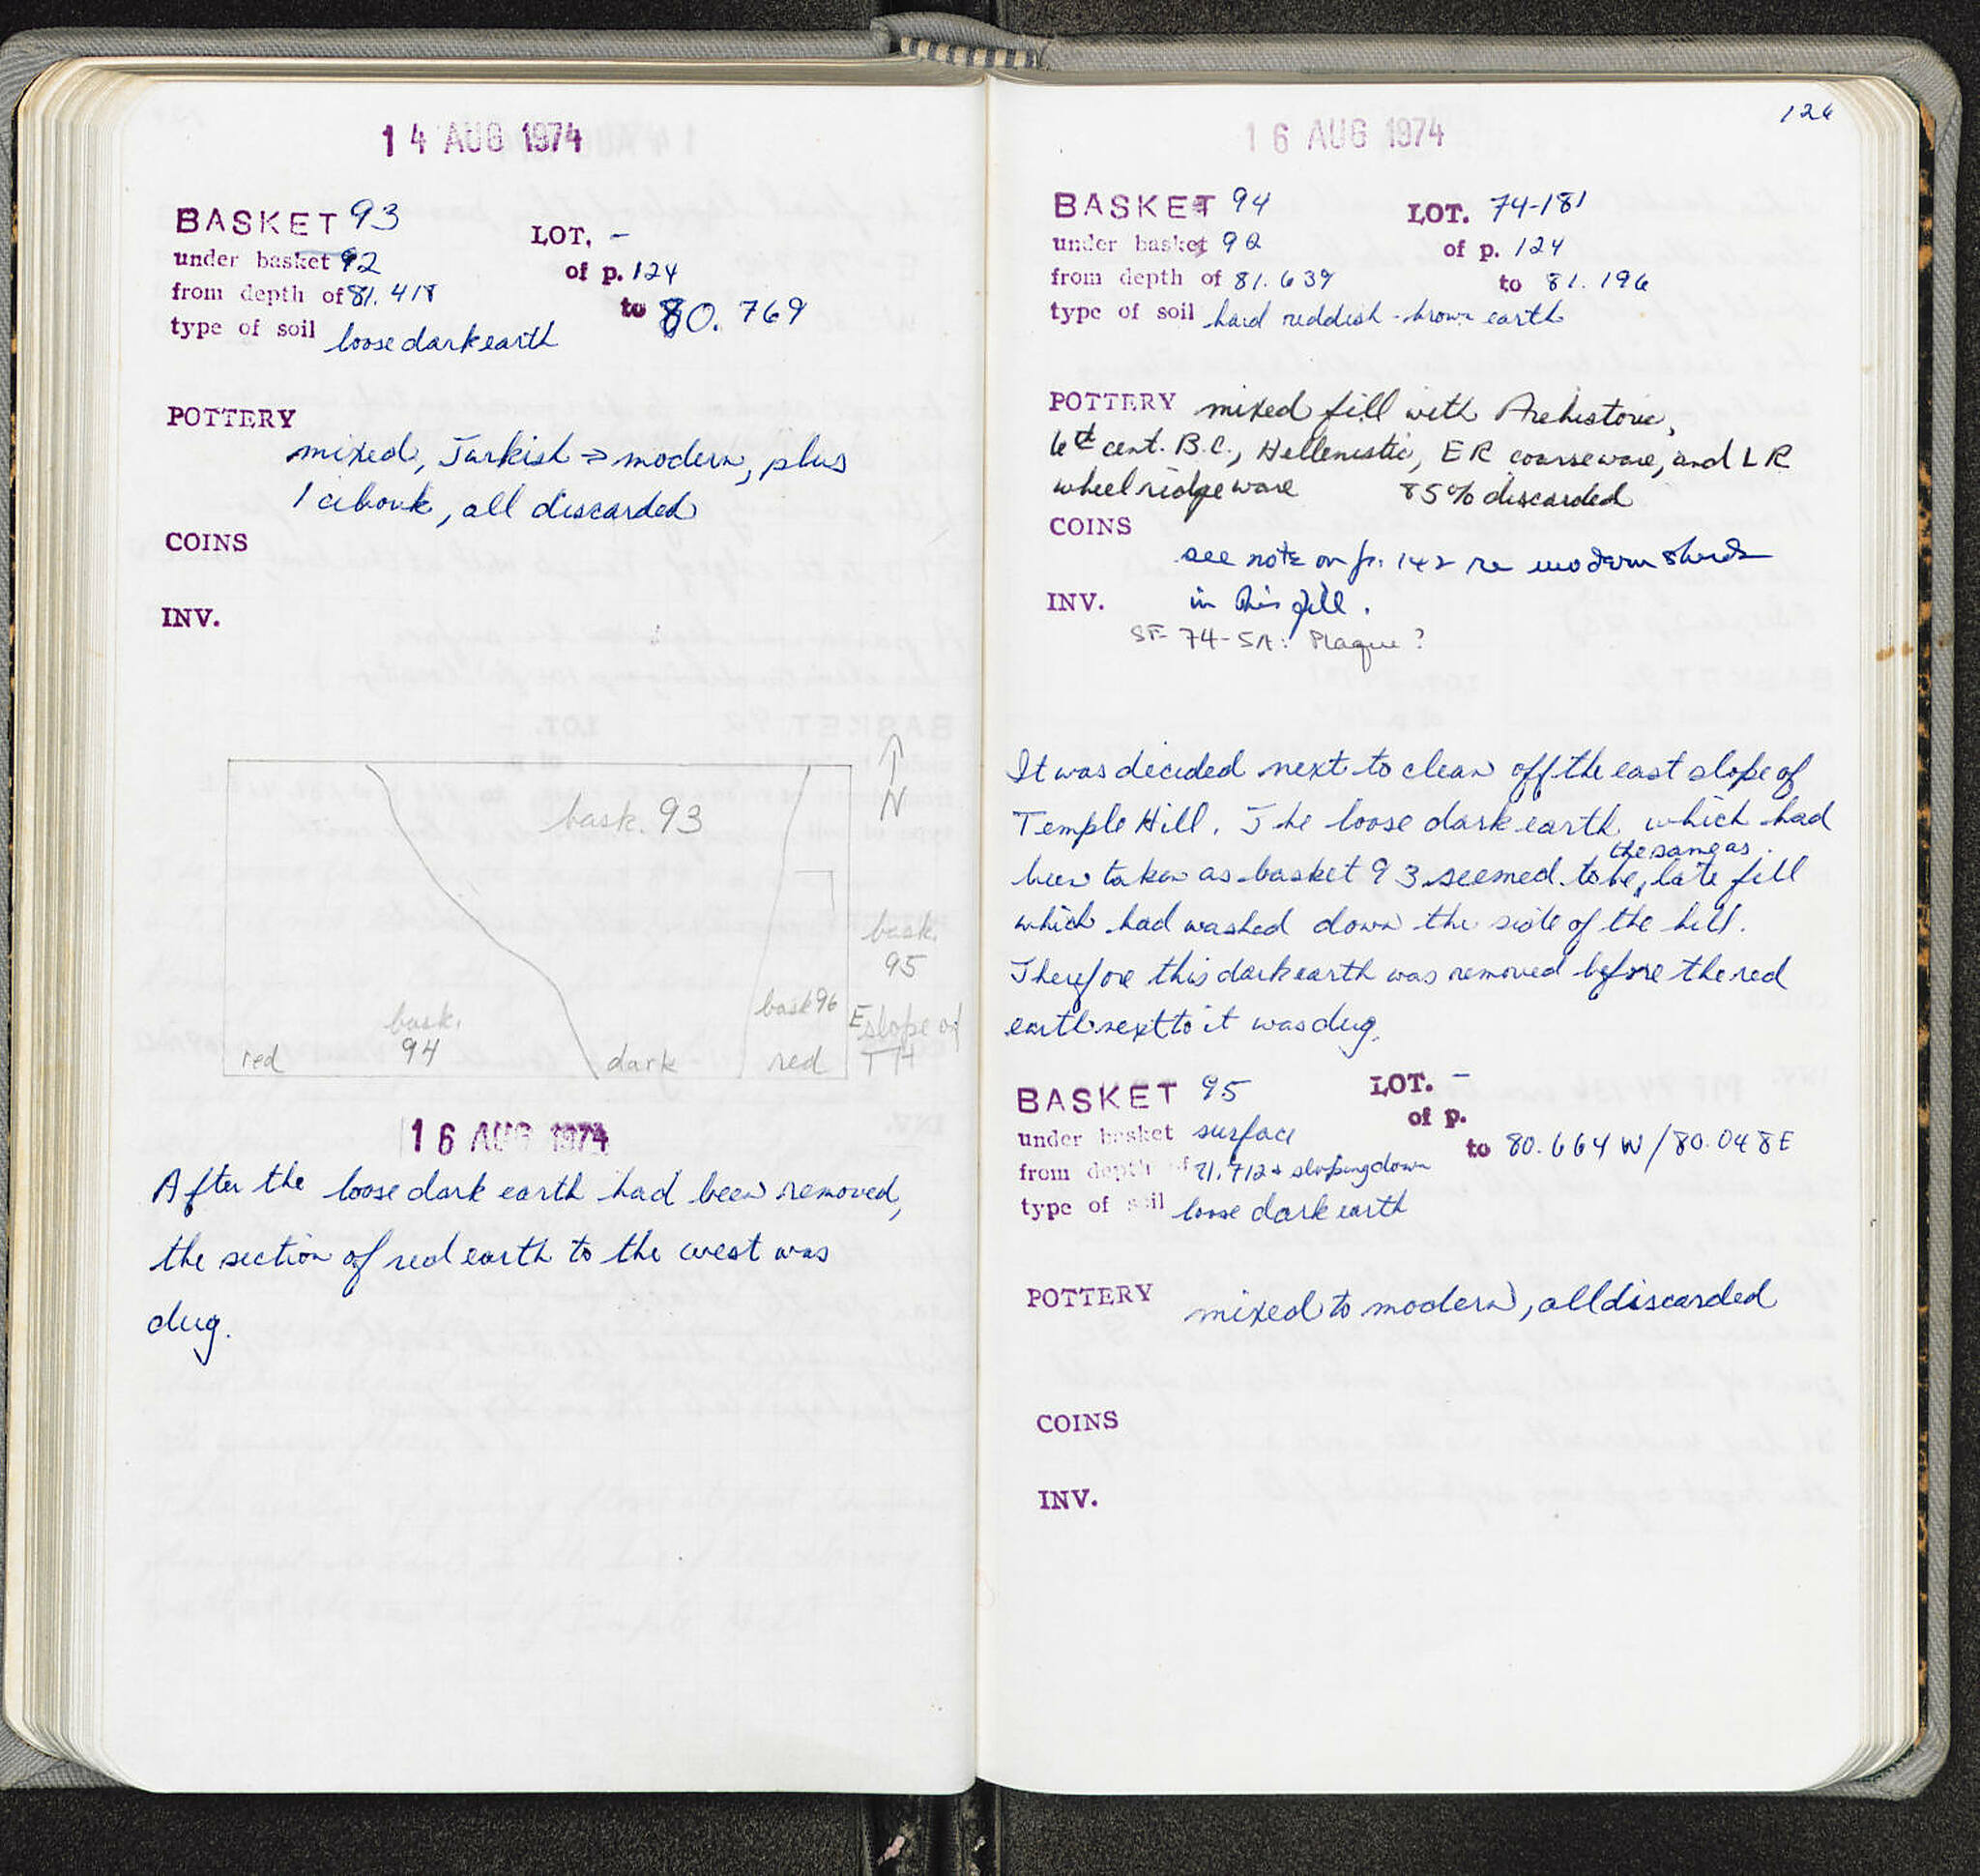 14 AUG 1974
BASKET 93
LOT. -
under basket 92
of p. 124
from depth of 81.418
to 80.769
type of soil loose dark earth
POTTERY
mixed, Turkish → modern, plus
1 cibouk, all discarded
COINS
INV.
N
bask. 93
bask.
95
bask 96
E slope of
TH
bask.
94
red
dark
red
16 AUG 1974
After the loose dark earth had been removed,
the section of red earth to the west was
dug.
126
16 AUG 1974
BASKET 94
LOT. 74-181
under basket 92
of p. 124
from depth of 81.639
to 81.196
type of soil hard reddish-brown earth
POTTERY mixed fill with Prehistoric,
6th cent. B.C., Hellenistic, ER coarseware, and LR
wheelridge ware 85% discarded
COINS
see note on p. 142 re modern sherds
INV. in this fill.
SF 74-5A: Plaque?
It was decided next to clean off the east slope of
Temple Hill. The loose dark earth which had
been taken as basket 93 seemed to be the same as late fill
which had washed down the side of the hill.
Therefore this dark earth was removed before the red
earth next to it was dug.
BASKET 95
LOT. -
under basket surface
of p.
from depth of 81.712 & sloping down
to 80.664 W / 80.048 E
type of soil loose dark earth
POTTERY mixed to modern, all discarded
COINS
INV.